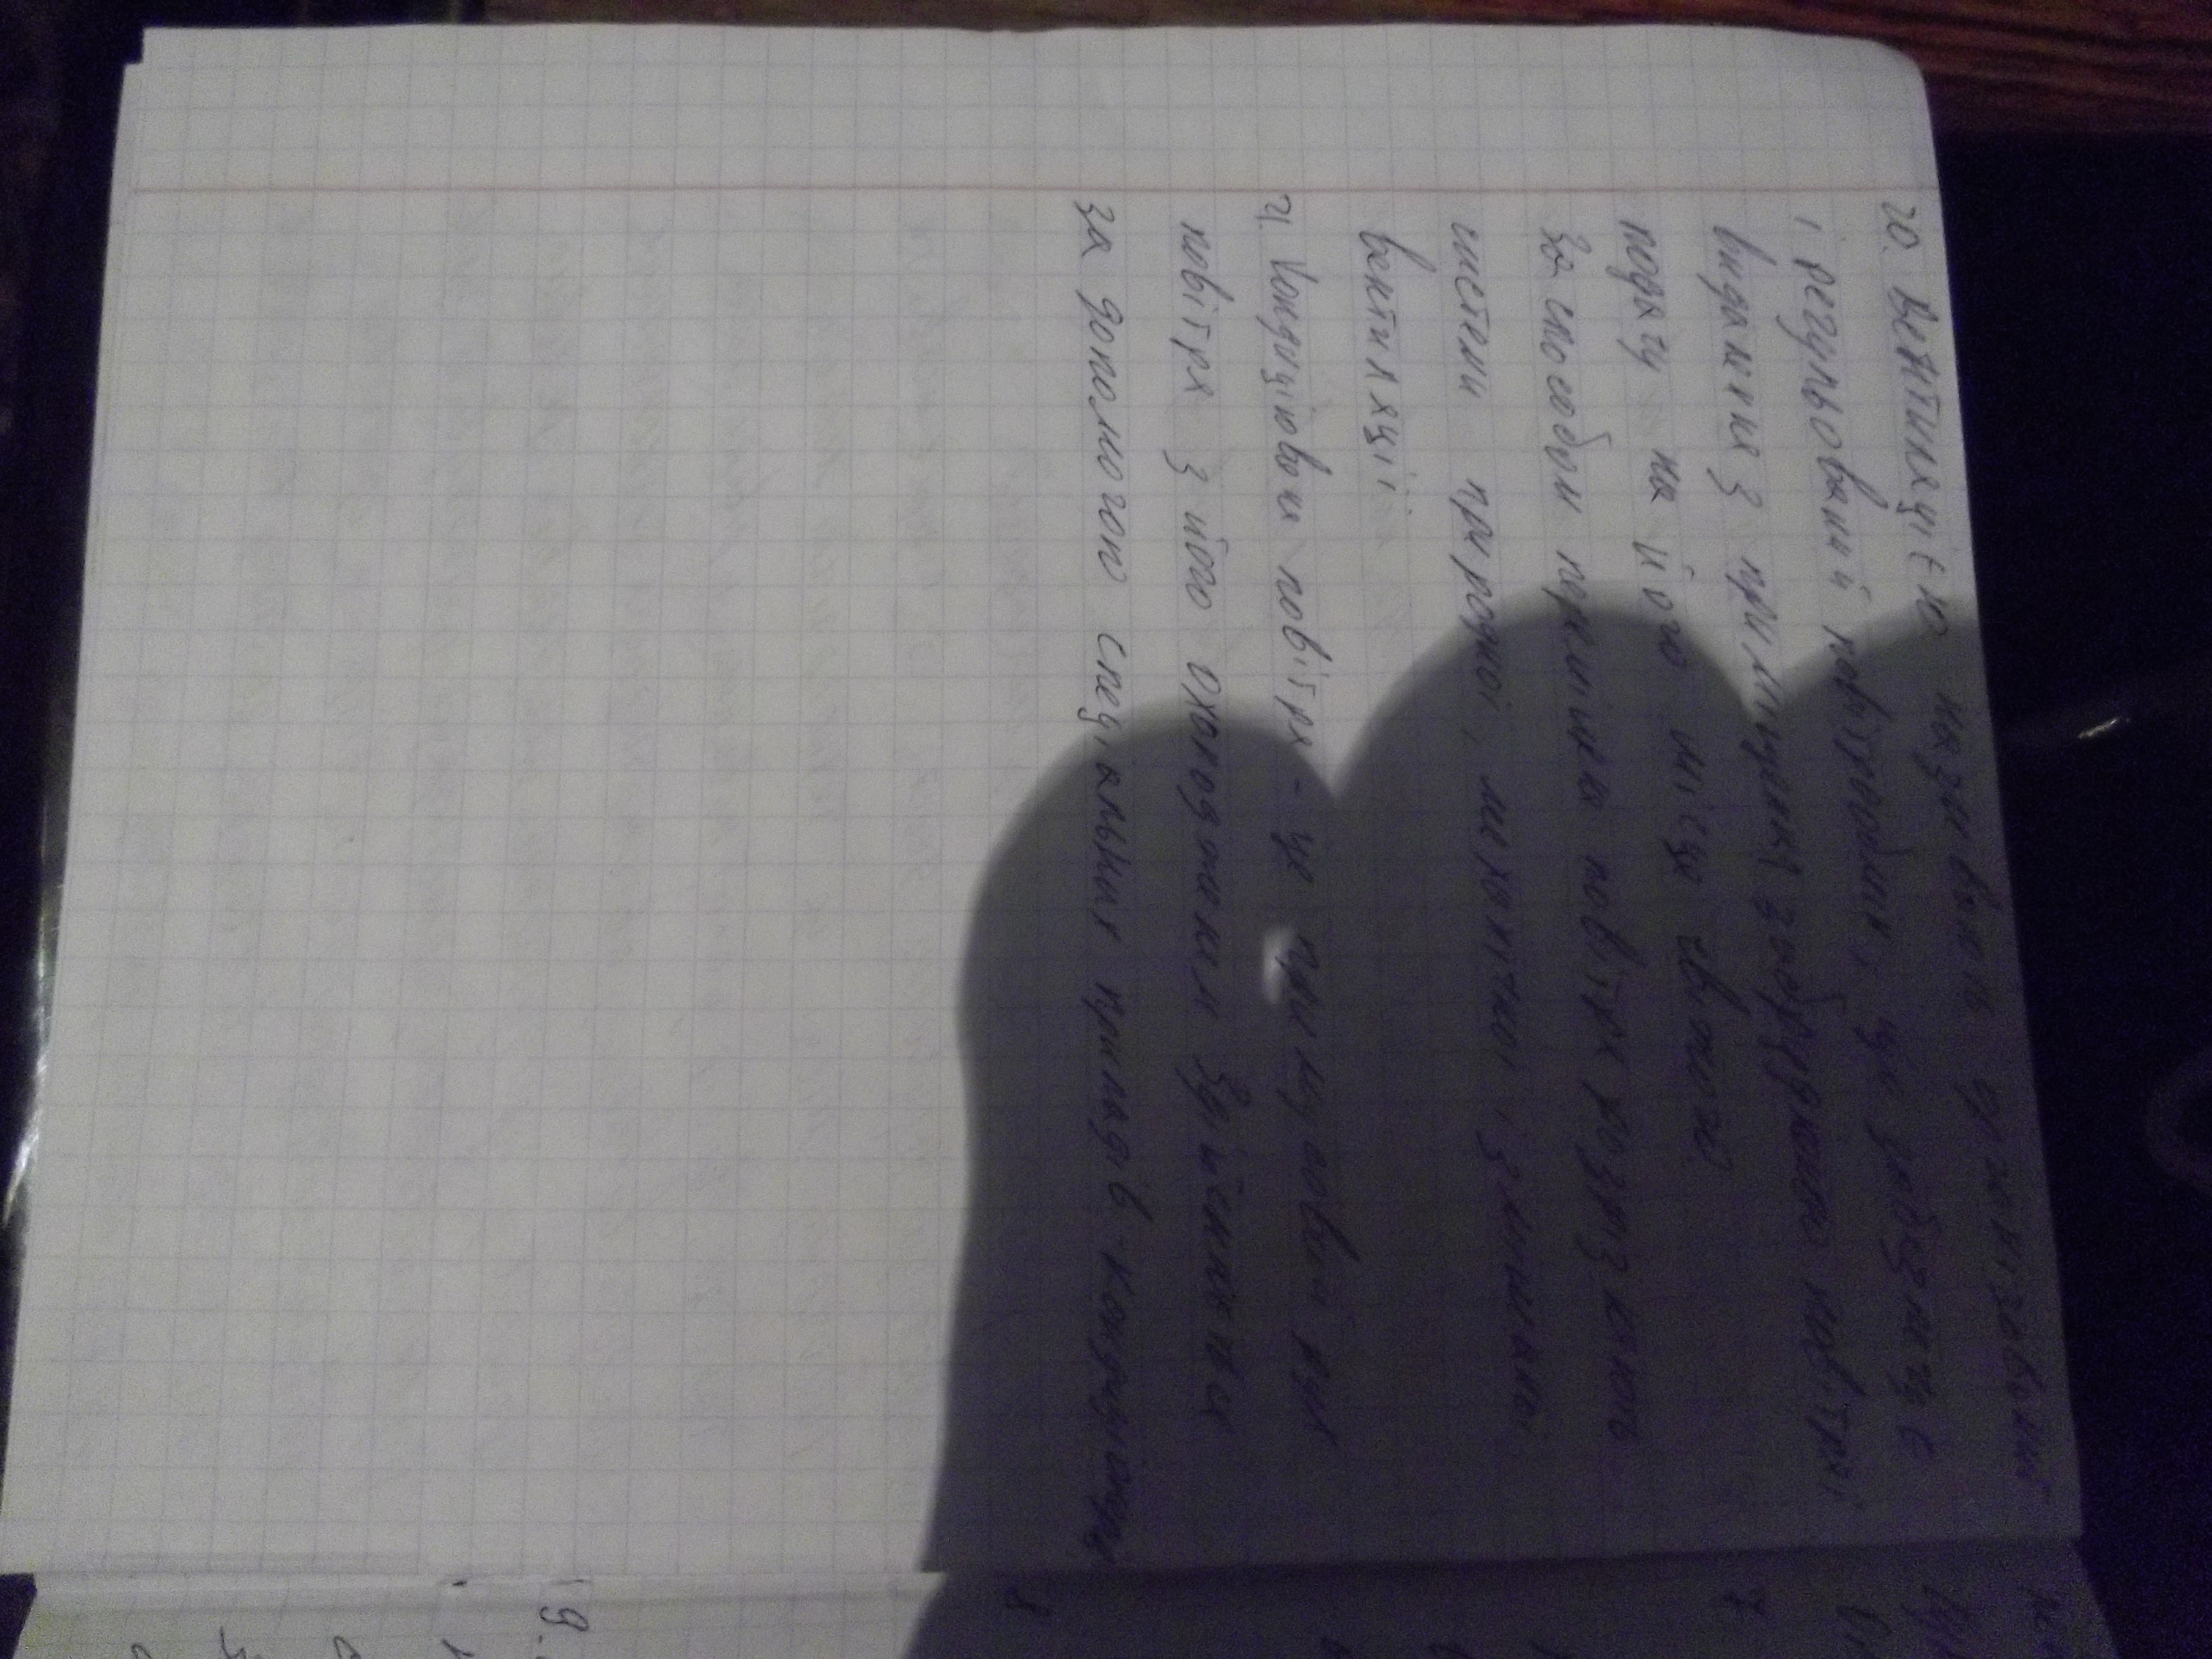 20. Вентиляцією називають організований
і регульований повітрообмін, що забезпечує
видалення з приміщення забрудненого повітря і
подачу на його місце свіжого
За способом переміщення повітря розрізняють
системи природної, механічної і змішаної
вентиляції
21. Кондиціювання повітря - це примусовий рух
повітря з його охолодженням. Здійснюється
за допомогою спеціальних приладів - кондиціонерів
8
19.